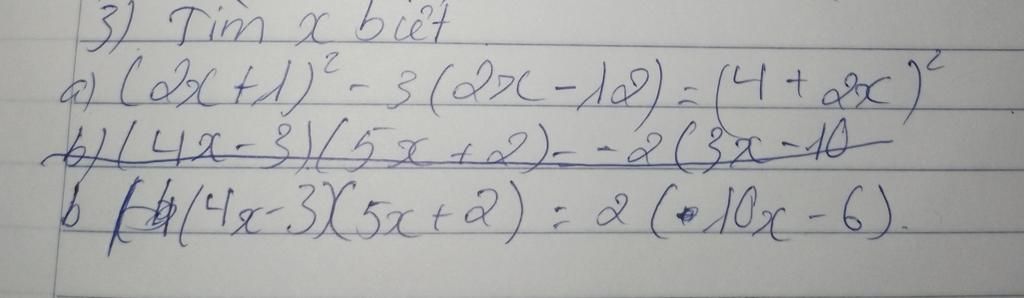 3) Tìm x biết
a) (2x+1)² - 3(2x-12) = (4+2x)²
b) (4x-3)(5x+2) = -2(3x-10
b (4x-3)(5x+2) = 2(10x-6).